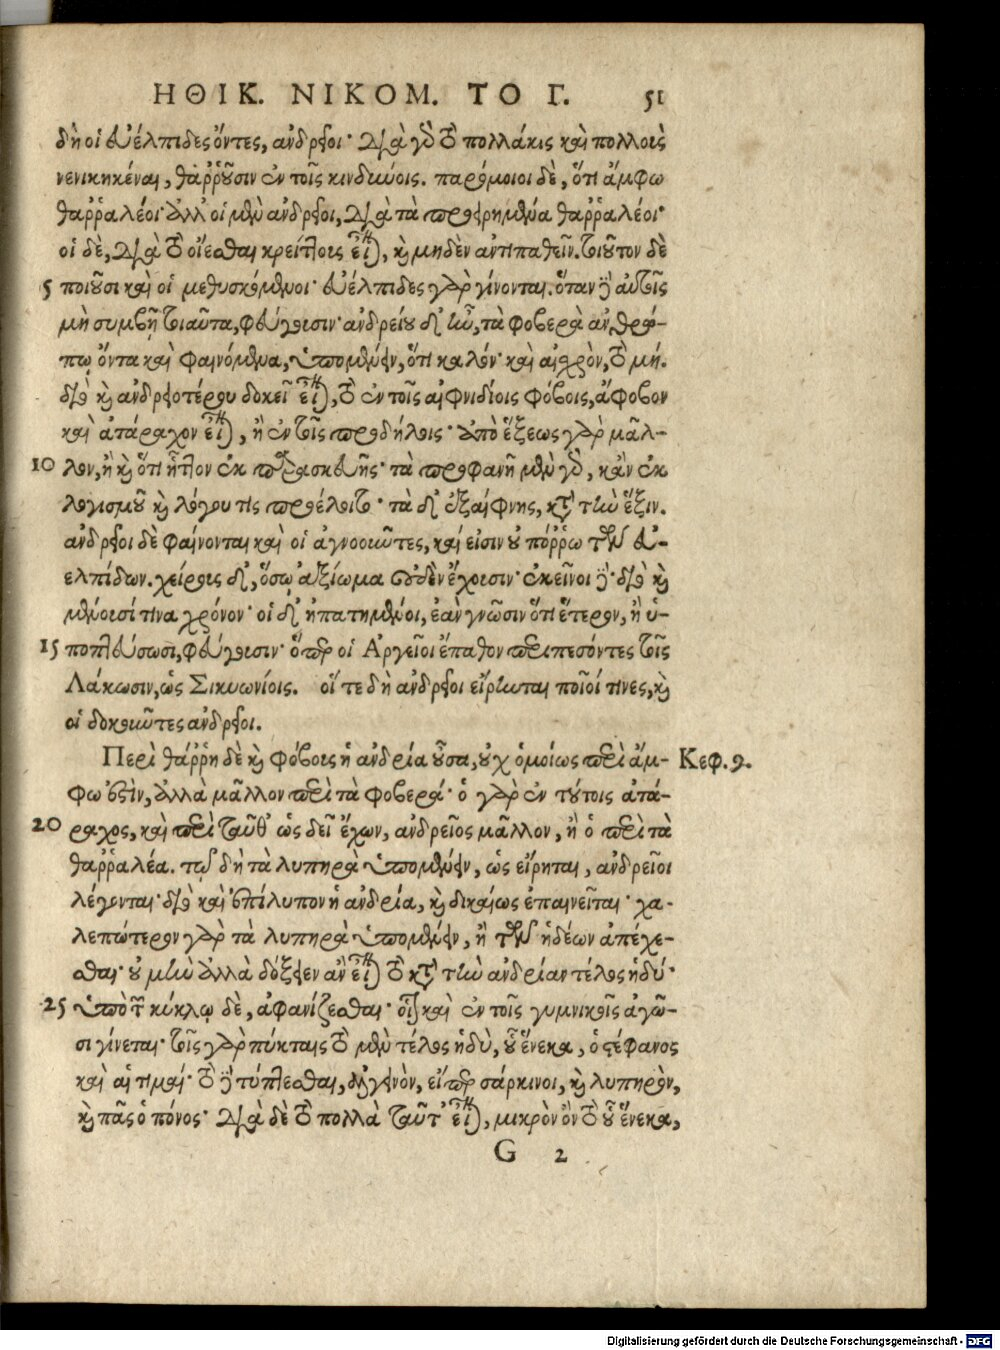 ΗΘΙΚ. ΝΙΚΟΜ. ΤΟ Γ. 51
δὴ οἱ εὐέλπιδες ὄντες, ἀνδρεῖοι· διὰ γὰρ τὸ πολλάκις καὶ πολλοὺς
νενικηκέναι, θαῤῥοῦσιν ἐν τοῖς κινδύνοις. παρόμοιοι δὲ, ὅτι ἄμφω
θαῤῥαλέοι· ἀλλ' οἱ μὲν ἀνδρεῖοι, διὰ τὰ προειρημένα θαῤῥαλέοι·
οἱ δὲ, διὰ τὸ οἴεσθαι κρείττους εἶναι, καὶ μηδὲν ἀντιπαθεῖν. τοιοῦτον δὲ
5 ποιοῦσι καὶ οἱ μεθυσκόμενοι· εὐέλπιδες γὰρ γίνονται. ὅταν δὲ αὐτοῖς
μὴ συμβῇ τοιαῦτα, φεύγουσιν· ἀνδρείου δ' ἦν, τὰ φοβερὰ ἀνθρώ-
πῳ ὄντα καὶ φαινόμενα, ὑπομένειν, ὅτι καλόν· καὶ αἰσχρὸν, τὸ μή.
διὸ καὶ ἀνδρειοτέρου δοκεῖ εἶναι, τὸ ἐν τοῖς αἰφνιδίοις φόβοις, ἄφοβον
καὶ ἀτάραχον εἶναι, ἢ ἐν τοῖς προδήλοις· ἀπὸ ἕξεως γὰρ μᾶλ-
10 λον, ἢ καὶ ὅτι ἧττον ἐκ παρασκευῆς· τὰ προφανῆ μὲν γὰρ, κἂν ἐκ
λογισμοῦ καὶ λόγου τὶς προέλοιτο· τὰ δ' ἐξαίφνης, κατὰ τὴν ἕξιν.
ἀνδρεῖοι δὲ φαίνονται καὶ οἱ ἀγνοοῦντες, καί εἰσιν οὐ πόῤῥω τῶν εὐ-
ελπίδων. χείρους δ', ὅσῳ ἀξίωμα οὐδὲν ἔχουσιν· ἐκεῖνοι δέ· διὸ καὶ
μένουσί τινα χρόνον· οἱ δ' ἠπατημένοι, ἐὰν γνῶσιν ὅτι ἕτερον, ἢ ὑ-
15 ποπτεύσωσι, φεύγουσιν· ὅπερ οἱ Ἀργεῖοι ἔπαθον περιπεσόντες τοῖς
Λάκωσιν, ὡς Σικυωνίοις. οἵ τε δὴ ἀνδρεῖοι εἴρηνται ποῖοί τινες, καὶ
οἱ δοκοῦντες ἀνδρεῖοι.
Περὶ θάῤῥη δὲ καὶ φόβους ἡ ἀνδρία οὖσα, οὐχ ὁμοίως περὶ ἄμ- Κεφ. 9.
φω ἐστὶν, ἀλλὰ μᾶλλον περὶ τὰ φοβερά· ὁ γὰρ ἐν τούτοις ἀτά-
20 ραχος, καὶ περὶ ταῦθ' ὡς δεῖ ἔχων, ἀνδρεῖος μᾶλλον, ἢ ὁ περὶ τὰ
θαῤῥαλέα. τῷ δὴ τὰ λυπηρὰ ὑπομένειν, ὡς εἴρηται, ἀνδρεῖοι
λέγονται· διὸ καὶ ἐπίλυπον ἡ ἀνδρία, καὶ δικαίως ἐπαινεῖται· χα-
λεπώτερον γὰρ τὰ λυπηρὰ ὑπομένειν, ἢ τῶν ἡδέων ἀπέχε-
σθαι· οὐ μὴν ἀλλὰ δόξειεν ἂν εἶναι τὸ κατὰ τὴν ἀνδρίαν τέλος ἡδύ·
25 ὑπὸ τῶν κύκλῳ δὲ, ἀφανίζεσθαι· οἷον καὶ ἐν τοῖς γυμνικοῖς ἀγῶ-
σι γίνεται· τοῖς γὰρ πύκταις τὸ μὲν τέλος ἡδὺ, οὗ ἕνεκα, ὁ στέφανος
καὶ αἱ τιμαί· τὸ δὲ τύπτεσθαι, ἀλγεινὸν, εἴπερ σάρκινοι, καὶ λυπηρὸν,
καὶ πᾶς ὁ πόνος· διὰ δὲ τὸ πολλὰ ταῦτ' εἶναι, μικρὸν ὂν τὸ οὗ ἕνεκα,
G 2
Digitalisierung gefördert durch die Deutsche Forschungsgemeinschaft - DFG